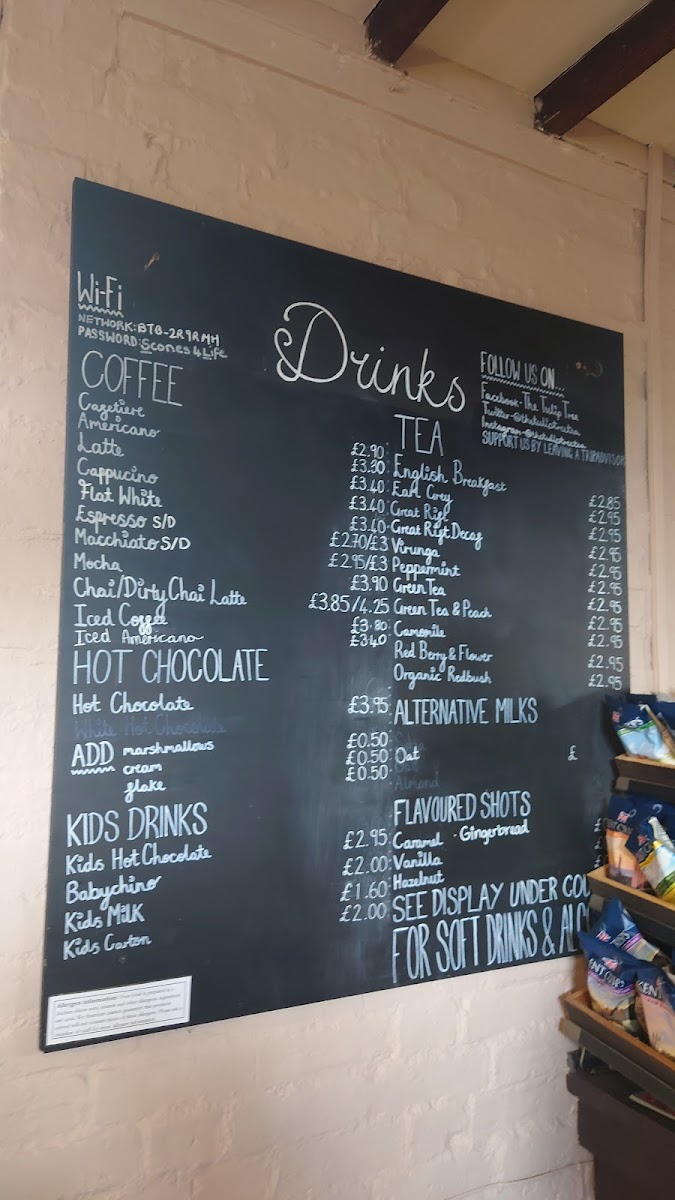 Wi-Fi
NETWORK: BTB-2R9RMH
PASSWORD: Scones4Life
Drinks
FOLLOW US ON...
Facebook-The Tulip Tree
Twitter-@thetuliptreetea
Instagram-@thetuliptreetea
SUPPORT US BY LEAVING A TRIPADVISOR
COFFEE
Cagetiere £2.90
Americano £3.30
Latte £3.40
Cappucino £3.40
Flat White £3.40
Espresso S/D £2.70/£3
Macchiato S/D £2.95/£3
Mocha £3.90
Chai/Dirty Chai Latte £3.85/4.25
Iced Coffee £3.80
Iced Americano £3.40
HOT CHOCOLATE
Hot Chocolate £3.95
White Hot Chocolate
ADD marshmallows £0.50
cream £0.50
flake £0.50
KIDS DRINKS
Kids Hot Chocolate £2.95
Babychino £2.00
Kids Milk £1.60
Kids Carton £2.00
TEA
English Breakfast £2.85
Earl Grey £2.95
Great Rift £2.95
Great Rift Decaf £2.95
Virunga £2.95
Peppermint £2.95
Green Tea £2.95
Green Tea & Peach £2.95
Camomile £2.95
Red Berry & Flower £2.95
Organic Redbush £2.95
ALTERNATIVE MILKS
Oat £
Almond
FLAVOURED SHOTS
Caramel · Gingerbread
Vanilla
Hazelnut
SEE DISPLAY UNDER COU
FOR SOFT DRINKS & ALCO
Allergen information: